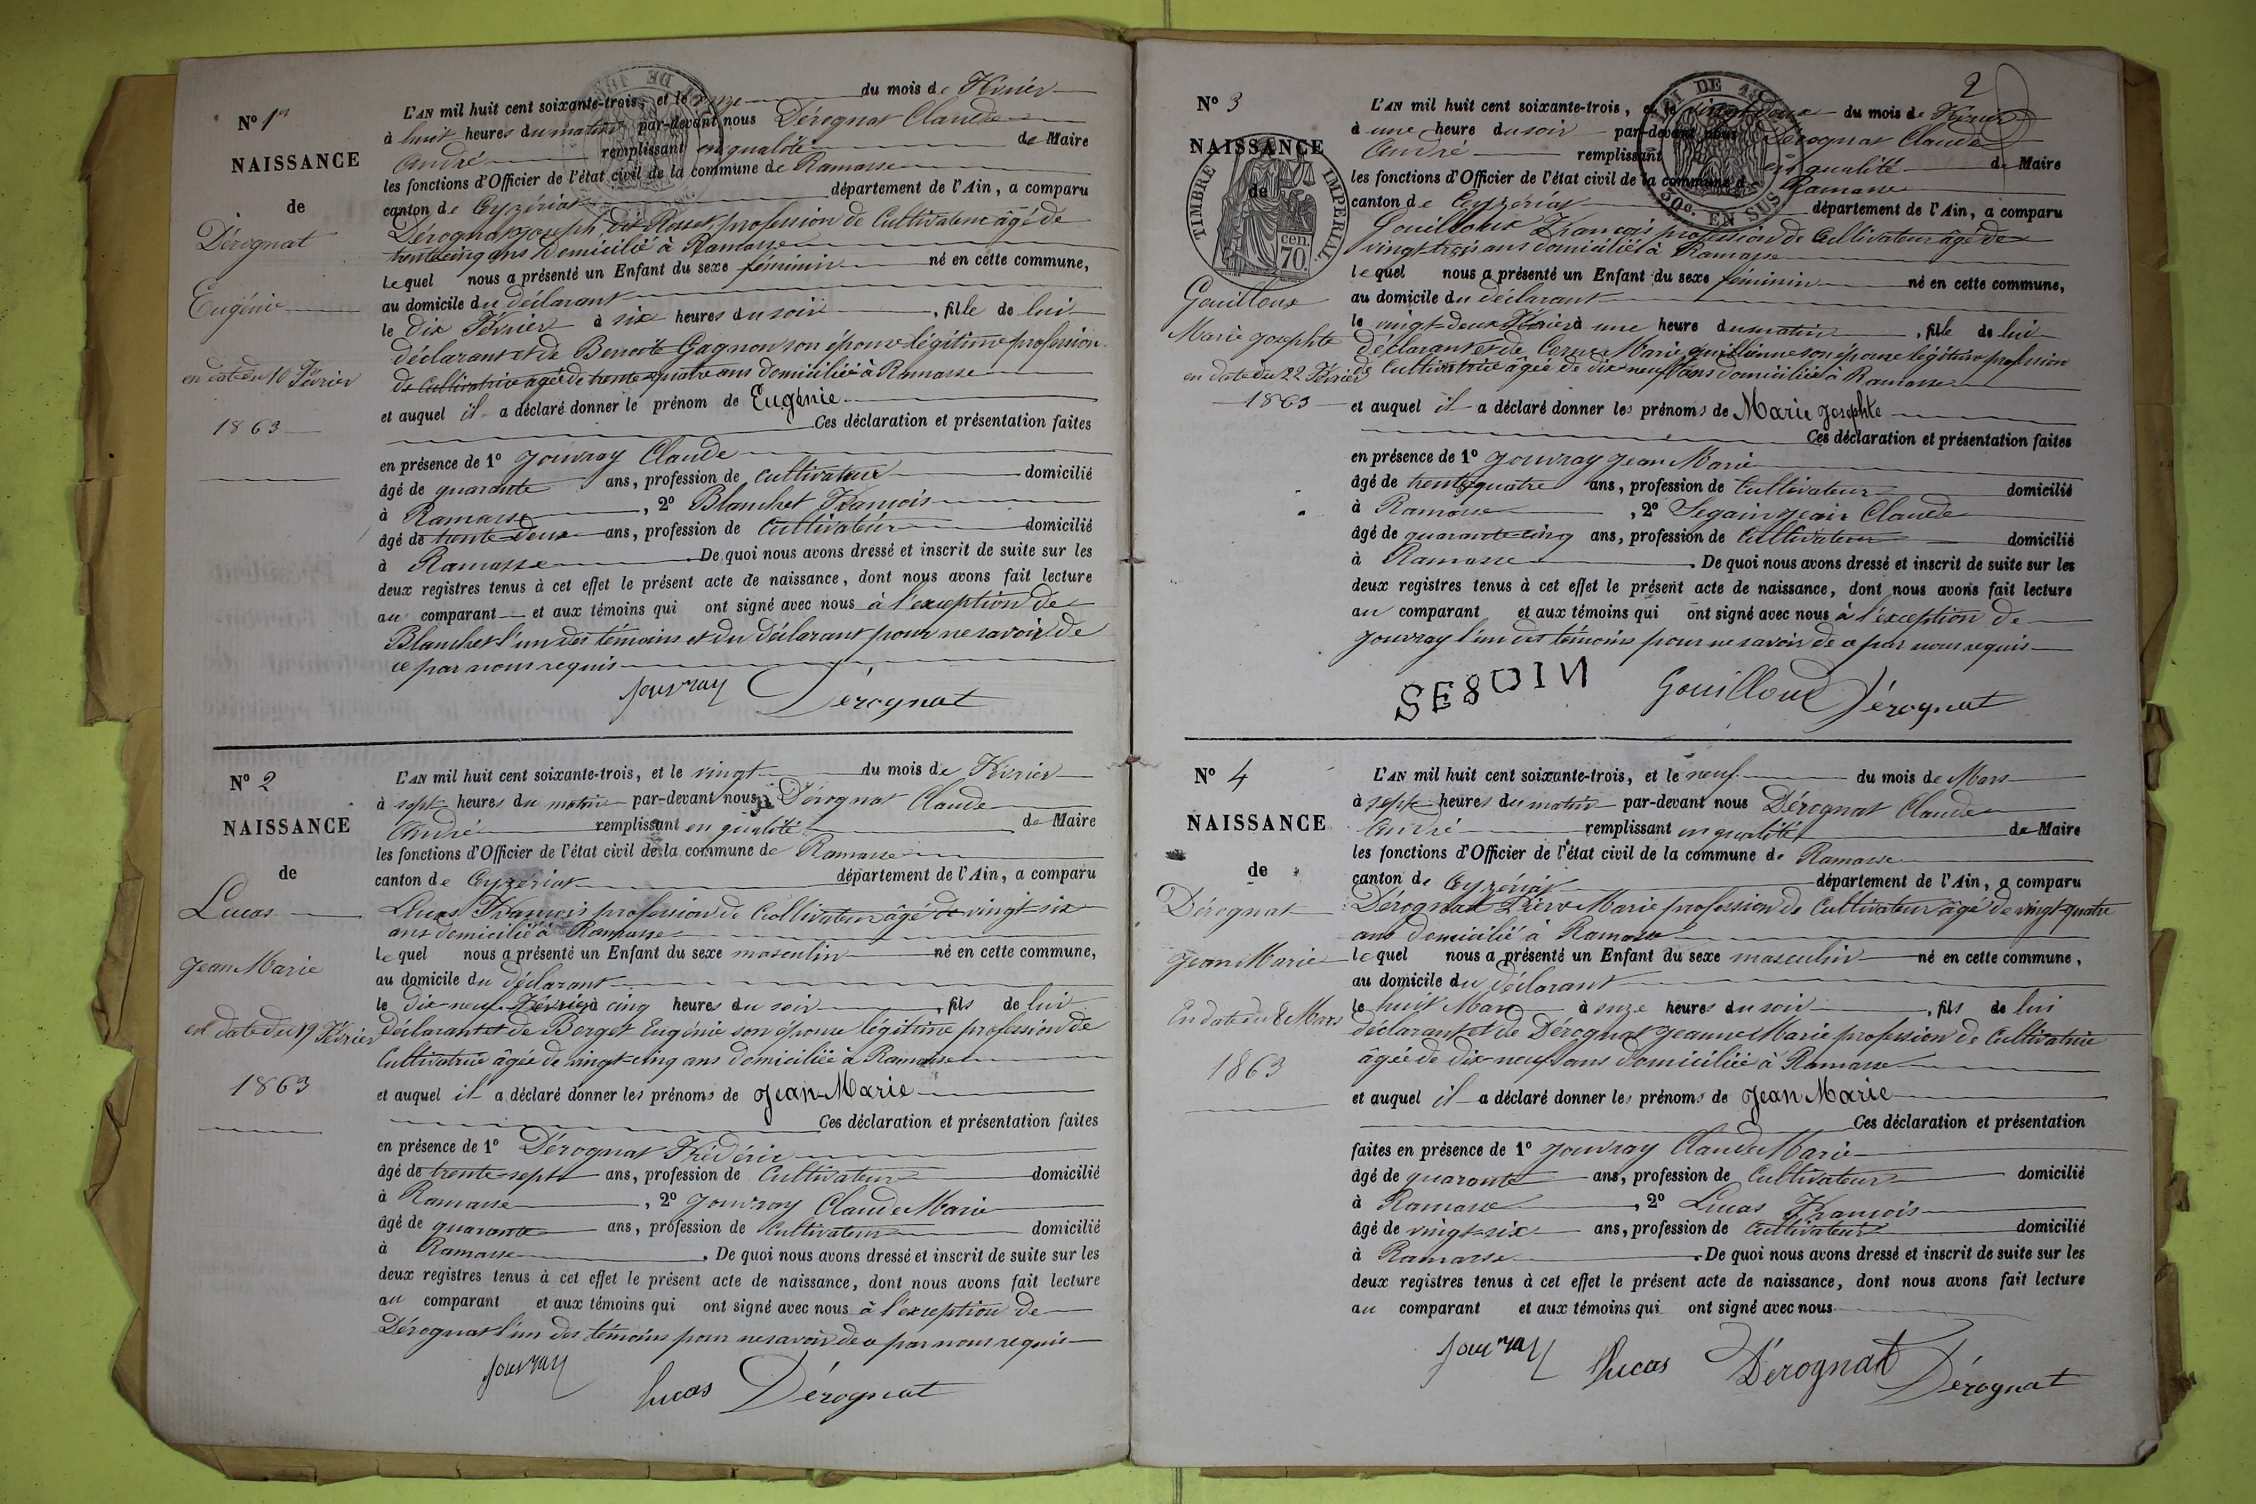 N° 1er
NAISSANCE
de
Dérognat
Eugénie
en date du 10 Février
1863
L'AN mil huit cent soixante-trois, et le onze du mois de Février
à huit heures du matin par-devant nous Dérognat Claude
André remplissant en qualité de Maire
les fonctions d'Officier de l'état civil de la commune de Ramasse
canton de Ceyzériat département de l'Ain, a comparu
Dérognat Joseph, dit Rosset, profession de Cultivateur âgé de
trente cinq ans Domicilié à Ramasse
Lequel nous a présenté un Enfant du sexe féminin né en cette commune,
au domicile du déclarant
le dix Février à six heures du soir, fille de lui
déclarant et de Benoite Gagnon son épouse légitime profession
de Cultivatrice âgée de trente quatre ans domiciliée à Ramasse
et auquel il a déclaré donner le prénom de Eugénie
Ces déclaration et présentation faites
en présence de 1° Jouvray Claude
âgé de quarante ans, profession de Cultivateur domicilié
à Ramasse, 2° Blanchet François
âgé de trente-deux ans, profession de Cultivateur domicilié
à Ramasse. De quoi nous avons dressé et inscrit de suite sur les
deux registres tenus à cet effet le présent acte de naissance, dont nous avons fait lecture
au comparant et aux témoins qui ont signé avec nous à l'exception de
Blanchet l'un des témoins et du déclarant pour ne savoir de
ce par nous requis
Jouvray Dérognat
N° 2
NAISSANCE
de
Lucas
Jean Marie
en date du 19 Février
1863
L'AN mil huit cent soixante-trois, et le vingt du mois de Février
à sept heures du matin par-devant nous Dérognat Claude
André remplissant en qualité de Maire
les fonctions d'Officier de l'état civil de la commune de Ramasse
canton de Ceyzériat département de l'Ain, a comparu
Lucas François profession de Cultivateur âgé de vingt-six
ans domicilié à Ramasse
Lequel nous a présenté un Enfant du sexe masculin né en cette commune,
au domicile du déclarant
le dix-neuf Février à cinq heures du soir, fils de lui
déclarant et de Berget Eugénie son épouse légitime profession de
Cultivatrice âgée de vingt-cinq ans domiciliée à Ramasse
et auquel il a déclaré donner les prénoms de Jean-Marie
Ces déclaration et présentation faites
en présence de 1° Dérognat Frédéric
âgé de trente-sept ans, profession de Cultivateur domicilié
à Ramasse, 2° Jouvray Claude Marie
âgé de quarante ans, profession de Cultivateur domicilié
à Ramasse. De quoi nous avons dressé et inscrit de suite sur les
deux registres tenus à cet effet le présent acte de naissance, dont nous avons fait lecture
au comparant et aux témoins qui ont signé avec nous à l'exception de
Dérognat l'un des témoins pour ne savoir de ce par nous requis
Jouvray Lucas Dérognat
2
N° 3
NAISSANCE
de
TIMBRE IMPERIAL
cen. 70.
Gouilloux
Marie Josephte
en date du 22 Février
1863
L'AN mil huit cent soixante-trois, et le vingt-deux du mois de Février
à une heure du soir par-devant nous Dérognat Claude
André remplissant en qualité de Maire
les fonctions d'Officier de l'état civil de la commune de Ramasse
canton de Ceyzériat département de l'Ain, a comparu
Gouilloux François profession de Cultivateur âgé de
vingt-trois ans domicilié à Ramasse
Lequel nous a présenté un Enfant du sexe féminin né en cette commune,
au domicile du déclarant
le vingt-deux Février à une heure du matin, fille de lui
déclarant et de Marie son épouse légitime profession
de Cultivatrice âgée de dix neuf ans domiciliée à Ramasse
et auquel il a déclaré donner les prénoms de Marie Josephte
Ces déclaration et présentation faites
en présence de 1° Jouvray Jean Marie
âgé de trente quatre ans, profession de Cultivateur domicilié
à Ramasse, 2° Segain Jean Claude
âgé de quarante-cinq ans, profession de Cultivateur domicilié
à Ramasse. De quoi nous avons dressé et inscrit de suite sur les
deux registres tenus à cet effet le présent acte de naissance, dont nous avons fait lecture
au comparant et aux témoins qui ont signé avec nous à l'exception de
Jouvray l'un des témoins pour ne savoir de ce par nous requis
Gouilloud Dérognat
N° 4
NAISSANCE
de
Dérognat
Jean Marie
En date du 8 Mars
1863
L'AN mil huit cent soixante-trois, et le neuf du mois de Mars
à sept heures du matin par-devant nous Dérognat Claude
André remplissant en qualité de Maire
les fonctions d'Officier de l'état civil de la commune de Ramasse
canton de Ceyzériat département de l'Ain, a comparu
Dérognat Pierre Marie profession de Cultivateur âgé de vingt-quatre
ans domicilié à Ramasse
Lequel nous a présenté un Enfant du sexe masculin né en cette commune,
au domicile du déclarant
le huit Mars à onze heures du soir, fils de lui
déclarant et de Dérognat Jeanne Marie profession de Cultivatrice
âgée de dix-neuf ans domiciliée à Ramasse
et auquel il a déclaré donner les prénoms de Jean Marie
Ces déclaration et présentation
faites en présence de 1° Jouvray Claude Marie
âgé de quarante ans, profession de Cultivateur domicilié
à Ramasse, 2° Lucas François
âgé de vingt-six ans, profession de Cultivateur domicilié
à Ramasse. De quoi nous avons dressé et inscrit de suite sur les
deux registres tenus à cet effet le présent acte de naissance, dont nous avons fait lecture
au comparant et aux témoins qui ont signé avec nous
Jouvray Lucas Dérognat Dérognat